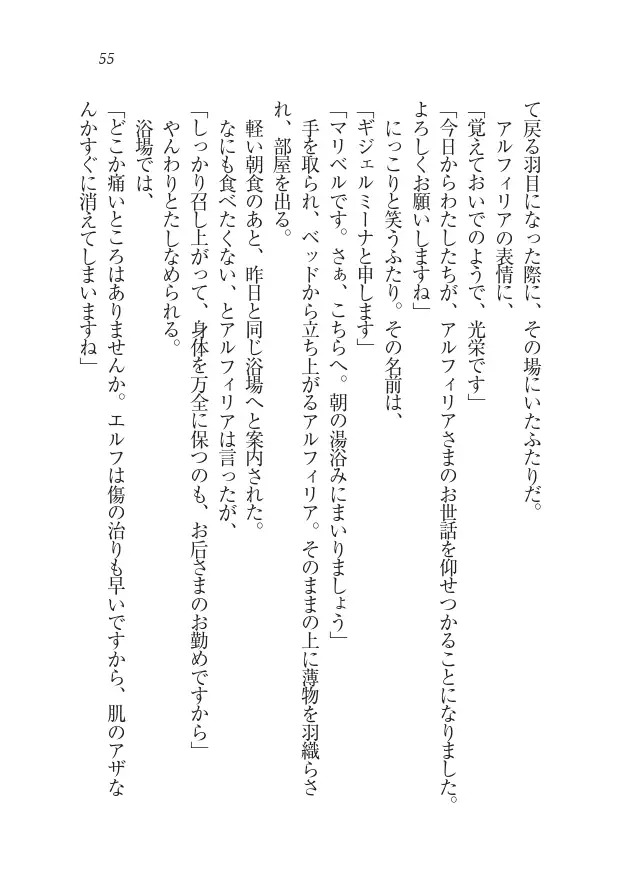 55
て戻る羽目になった際に、その場にいたふたりだ。
アルフィリアの表情に、
「覚えておいでのようで、光栄です」
「今日からわたしたちが、アルフィリアさまのお世話を仰せつかることになりました。
よろしくお願いしますね」
にっこりと笑うふたり。その名前は、
「ギジェルミーナと申します」
「マリベルです。さぁ、こちらへ。朝の湯浴みにまいりましょう」
手を取られ、ベッドから立ち上がるアルフィリア。そのままの上に薄物を羽織らさ
れ、部屋を出る。
軽い朝食のあと、昨日と同じ浴場へと案内された。
なにも食べたくない、とアルフィリアは言ったが、
「しっかり召し上がって、身体を万全に保つのも、お后さまのお勤めですから」
やんわりとたしなめられる。
浴場では、
「どこか痛いところはありませんか。エルフは傷の治りも早いですから、肌のアザな
んかすぐに消えてしまいますね」